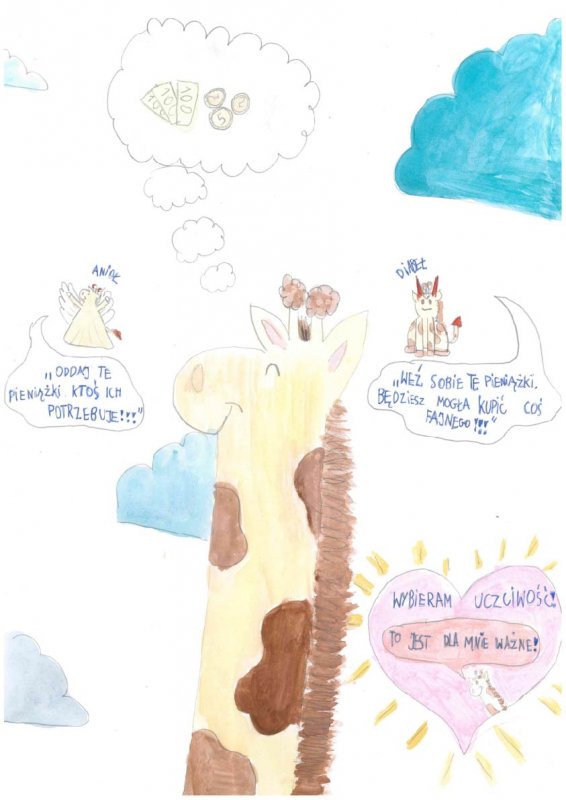 100 100 100
1 2
5
ANIOŁ
DIABEŁ
„ODDAJ TE
PIENIĄŻKI. KTOŚ ICH
POTRZEBUJE!!!”
„WEŹ SOBIE TE PIENIĄŻKI.
BĘDZIESZ MOGŁA KUPIĆ COŚ
FAJNEGO!!!”
WYBIERAM UCZCIWOŚĆ!
TO JEST DLA MNIE WAŻNE!